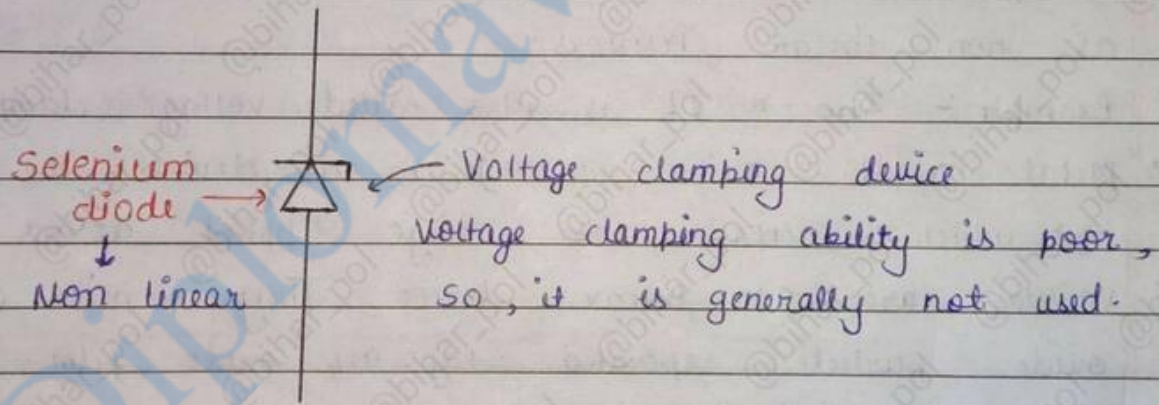 Selenium
diode
Non linear
Voltage clamping device
Voltage clamping ability is poor,
so, it is generally not used.
@bihar_pol
Diploma